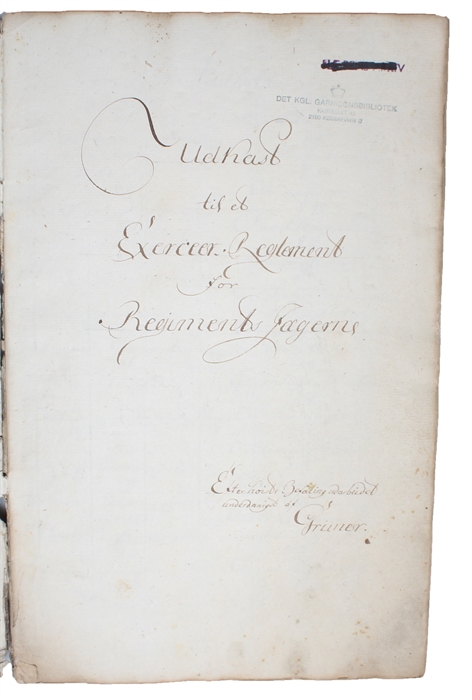 DET KGL. GARNISONSBIBLIOTEK
Udkast
til et
Exerceer-Reglement
for
Regiments Jægerne
Efter höieste Befaling udarbeidet
underdanigst af
Grüner.